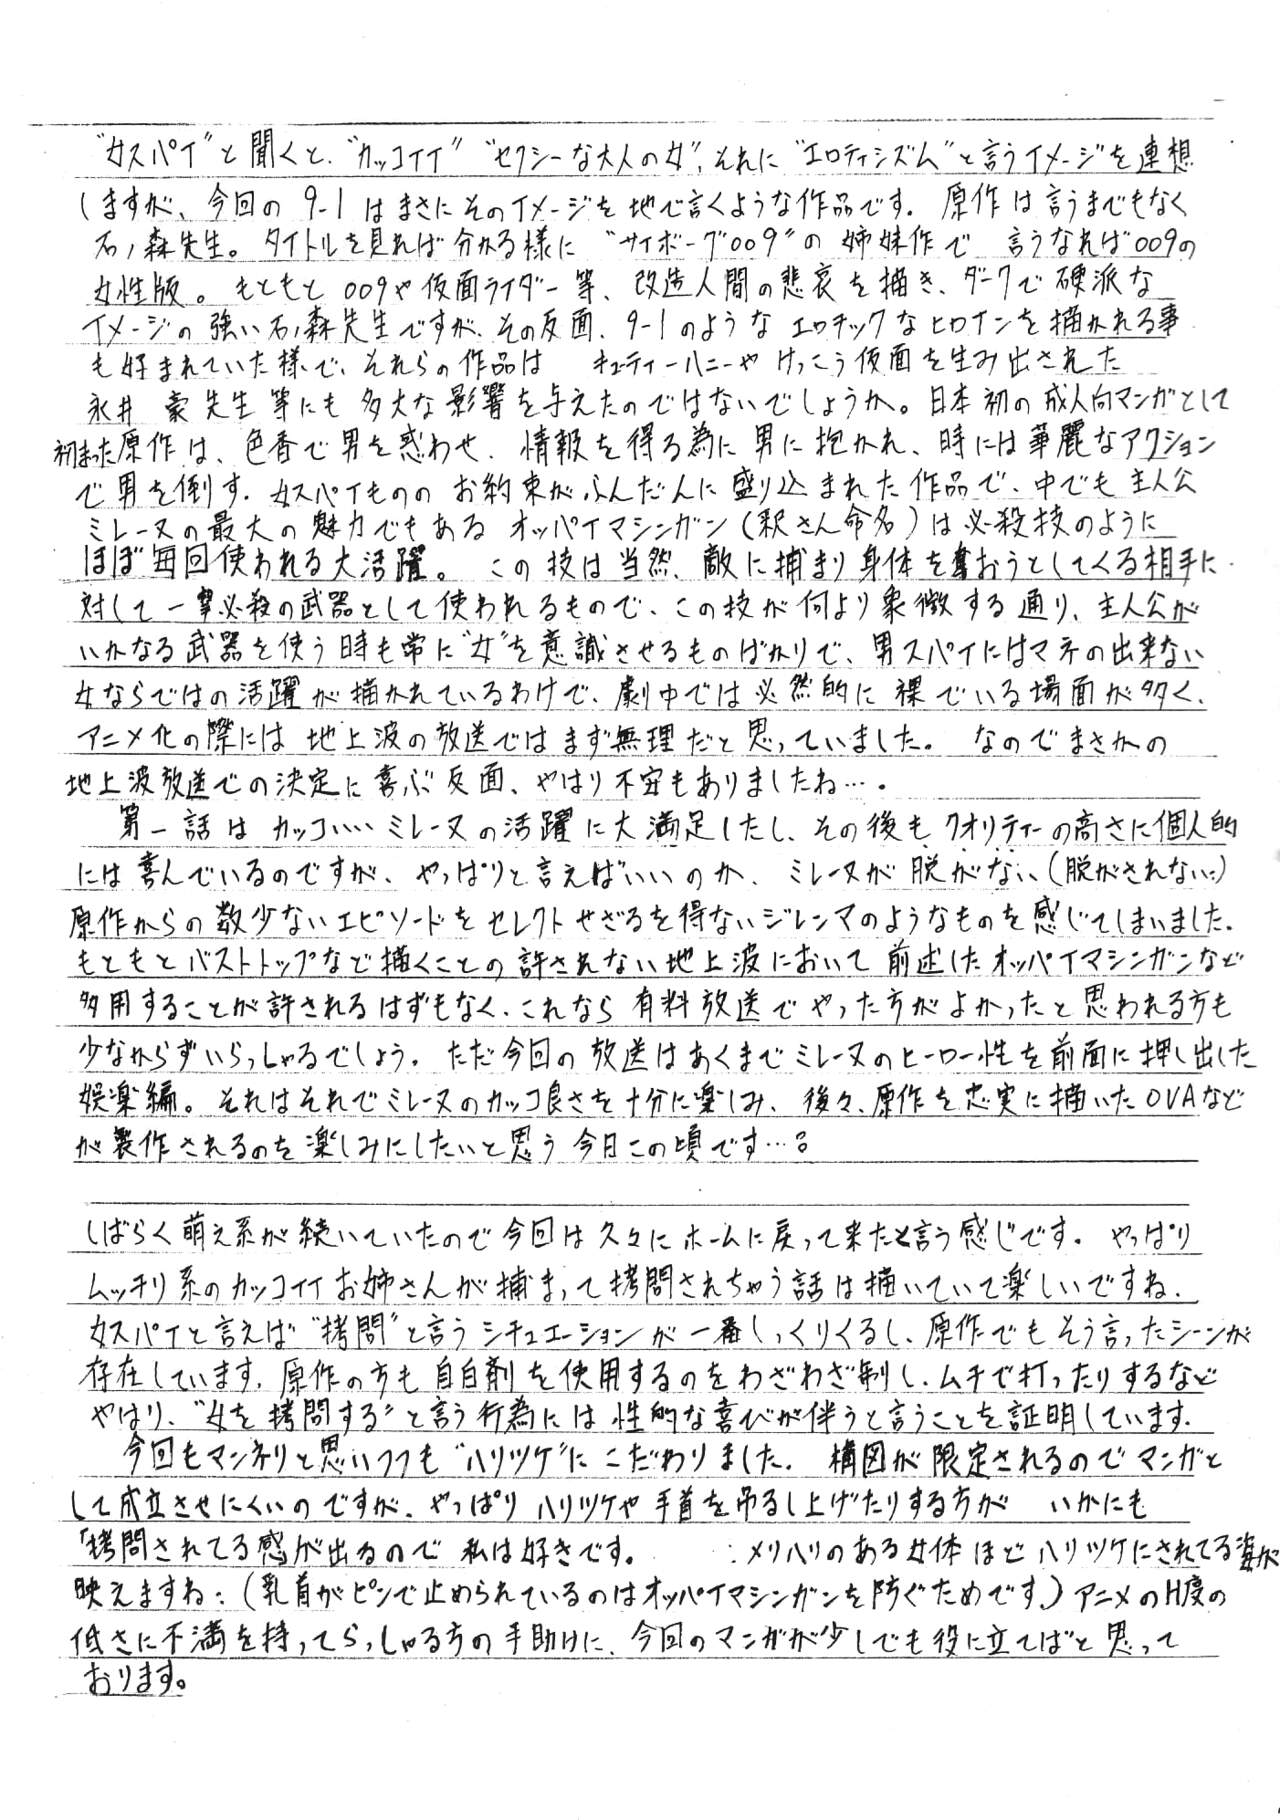 "女スパイ"と聞くと、"カッコイイ" "セクシーな大人の女"、それに"エロティシズム"と言うイメージを連想
しますが、今回の9-1はまさにそのイメージを地で言くような作品です。原作は言うまでもなく
石ノ森先生。タイトルを見れば分かる様に "サイボーグ009"の姉妹作で 言うなれば009の
女性版。もともと009や仮面ライダー等、改造人間の悲哀を描き、ダークで硬派な
イメージの強い石ノ森先生ですが、その反面、9-1のようなエロチックなヒロインを描かれる事
も好まれていた様で、それらの作品は キューティーハニーやけっこう仮面を生み出された
永井 豪先生等にも多大な影響を与えたのではないでしょうか。日本初の成人向マンガとして
初まった原作は、色香で男を惑わせ、情報を得る為に男に抱かれ、時には華麗なアクション
で男を倒す。女スパイもののお約束がふんだんに盛り込まれた作品で、中でも主人公
ミレーヌの最大の魅力でもあるオッパイマシンガン(釈さん命名)は必殺技のように
ほぼ毎回使われる大活躍。この技は当然、敵に捕まり身体を奪おうとしてくる相手に
対して一撃必殺の武器として使われるもので、この技が何より象徴する通り、主人公が
いかなる武器を使う時も常に"女"を意識させるものばかりで、男スパイにはマネの出来ない
女ならではの活躍が描かれているわけで、劇中では必然的に裸でいる場面が多く、
アニメ化の際には地上波の放送ではまず無理だと思っていました。なのでまさかの
地上波放送での決定に喜ぶ反面、やはり不安もありましたね…。
第一話はカッコいいミレーヌの活躍に大満足したし、その後もクオリティーの高さに個人的
には喜んでいるのですが、やっぱりと言えばいいのか、ミレーヌが脱がない(脱がされない)
原作からの数少ないエピソードをセレクトせざるを得ないジレンマのようなものを感じてしまいました。
もともとバストトップなど描くことの許されない地上波において前述したオッパイマシンガンなど
多用することが許されるはずもなく、これなら有料放送でやった方がよかったと思われる方も
少なからずいらっしゃるでしょう。ただ今回の放送はあくまでミレーヌのヒーロー性を前面に押し出した
娯楽編。それはそれでミレーヌのカッコ良さを十分に楽しみ、後々、原作を忠実に描いたOVAなど
が製作されるのを楽しみにしたいと思う今日この頃です…。
しばらく萌え系が続いていたので今回は久々にホームに戻って来たと言う感じです。やっぱり
ムッチリ系のカッコイイお姉さんが捕まって拷問されちゃう話は描いていて楽しいですね。
女スパイと言えば"拷問"と言うシチュエーションが一番しっくりくるし、原作でもそう言ったシーンが
存在しています。原作の方も自白剤を使用するのをわざわざ制し、ムチで打ったりするなど
やはり、"女を拷問する"と言う行為には性的な喜びが伴うと言うことを証明しています。
今回もマンネリと思いつつも"ハリツケ"にこだわりました。構図が限定されるのでマンガと
して成立させにくいのですが、やっぱりハリツケや手首を吊るし上げたりする方が いかにも
「拷問されてる感が出るので私は好きです。 メリハリのある女体ほどハリツケにされてる姿が
映えますね。(乳首がピンで止められているのはオッパイマシンガンを防ぐためです。)アニメのH度の
低さに不満を持ってらっしゃる方の手助けに、今回のマンガが少しでも役に立てばと思って
おります。